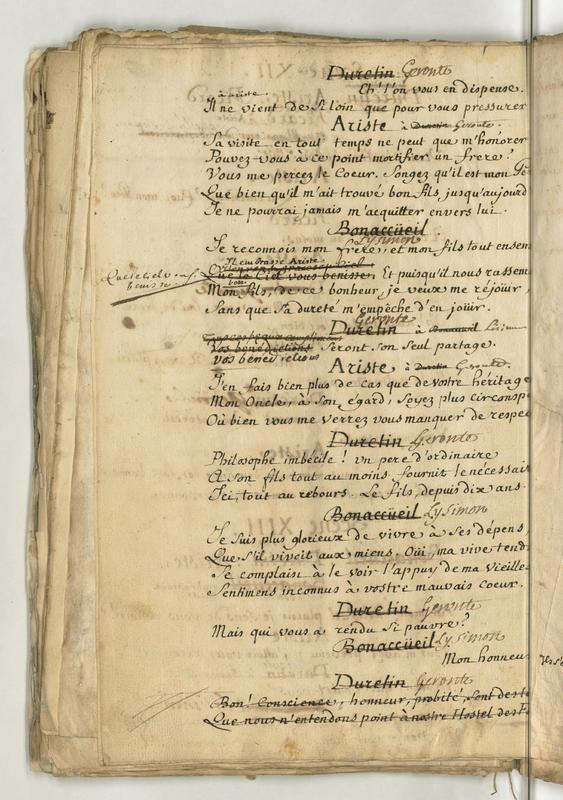 Duretin Geronte
à ariste. Eh! l'on vous en dispense.
Il ne vient de si loin que pour vous pressurer
Ariste à Duretin Geronte.
Sa visite en tout temps ne peut que m'honorer
Pouvez-vous à ce point mortifier un frere?
Vous me percez le Coeur. Songez qu'il est mon
Que bien qu'il m'ait trouvé bon fils, jusqu'aujourd
Je ne pourrai jamais m'acquitter envers lui.
Bonaccüeil.
Lysimon
Je reconnois mon frere, et mon fils tout ensem
Il embrasse Ariste
Que le Ciel vous benisse
Que le Ciel vous benisse. Et puisqu'il nous rassem
bon.
Mon fils, de ce bonheur, je veux me réjoüir,
Sans que sa dureté m'empêche d'en joüir.
Geronte
Duretin à Bonaccueil
Vos bénédictions Seront son seul partage.
vos benedictions
Ariste à Duretin Geronte.
J'en fais bien plus de cas que de vostre héritage
Mon Oncle, à son égard, soyez plus circonsp
Où bien vous me verrez vous manquer de respe
Duretin Geronte
Philosophe imbécile! un pere d'ordinaire
A son fils tout au moins fournit le nécessai
Ici, tout au rebours. Le fils, depuis dix ans
Bonaccüeil Lysimon
Je suis plus glorieux de vivre à ses dépens
Que s'il vivoit aux miens. Oüi, ma vive tend
Se complaisi à le voir l'appuy de ma vieille
Sentimens inconnus à vostre mauvais coeur.
Duretin Geronte
Mais qui vous a rendu si pauvre?
Bonaccüeil Lysimon
Mon honneu
Duretin Geronte
Bon! Conscience, honneur, probité, sont des
Que nous n'entendons point à nostre Hostel des